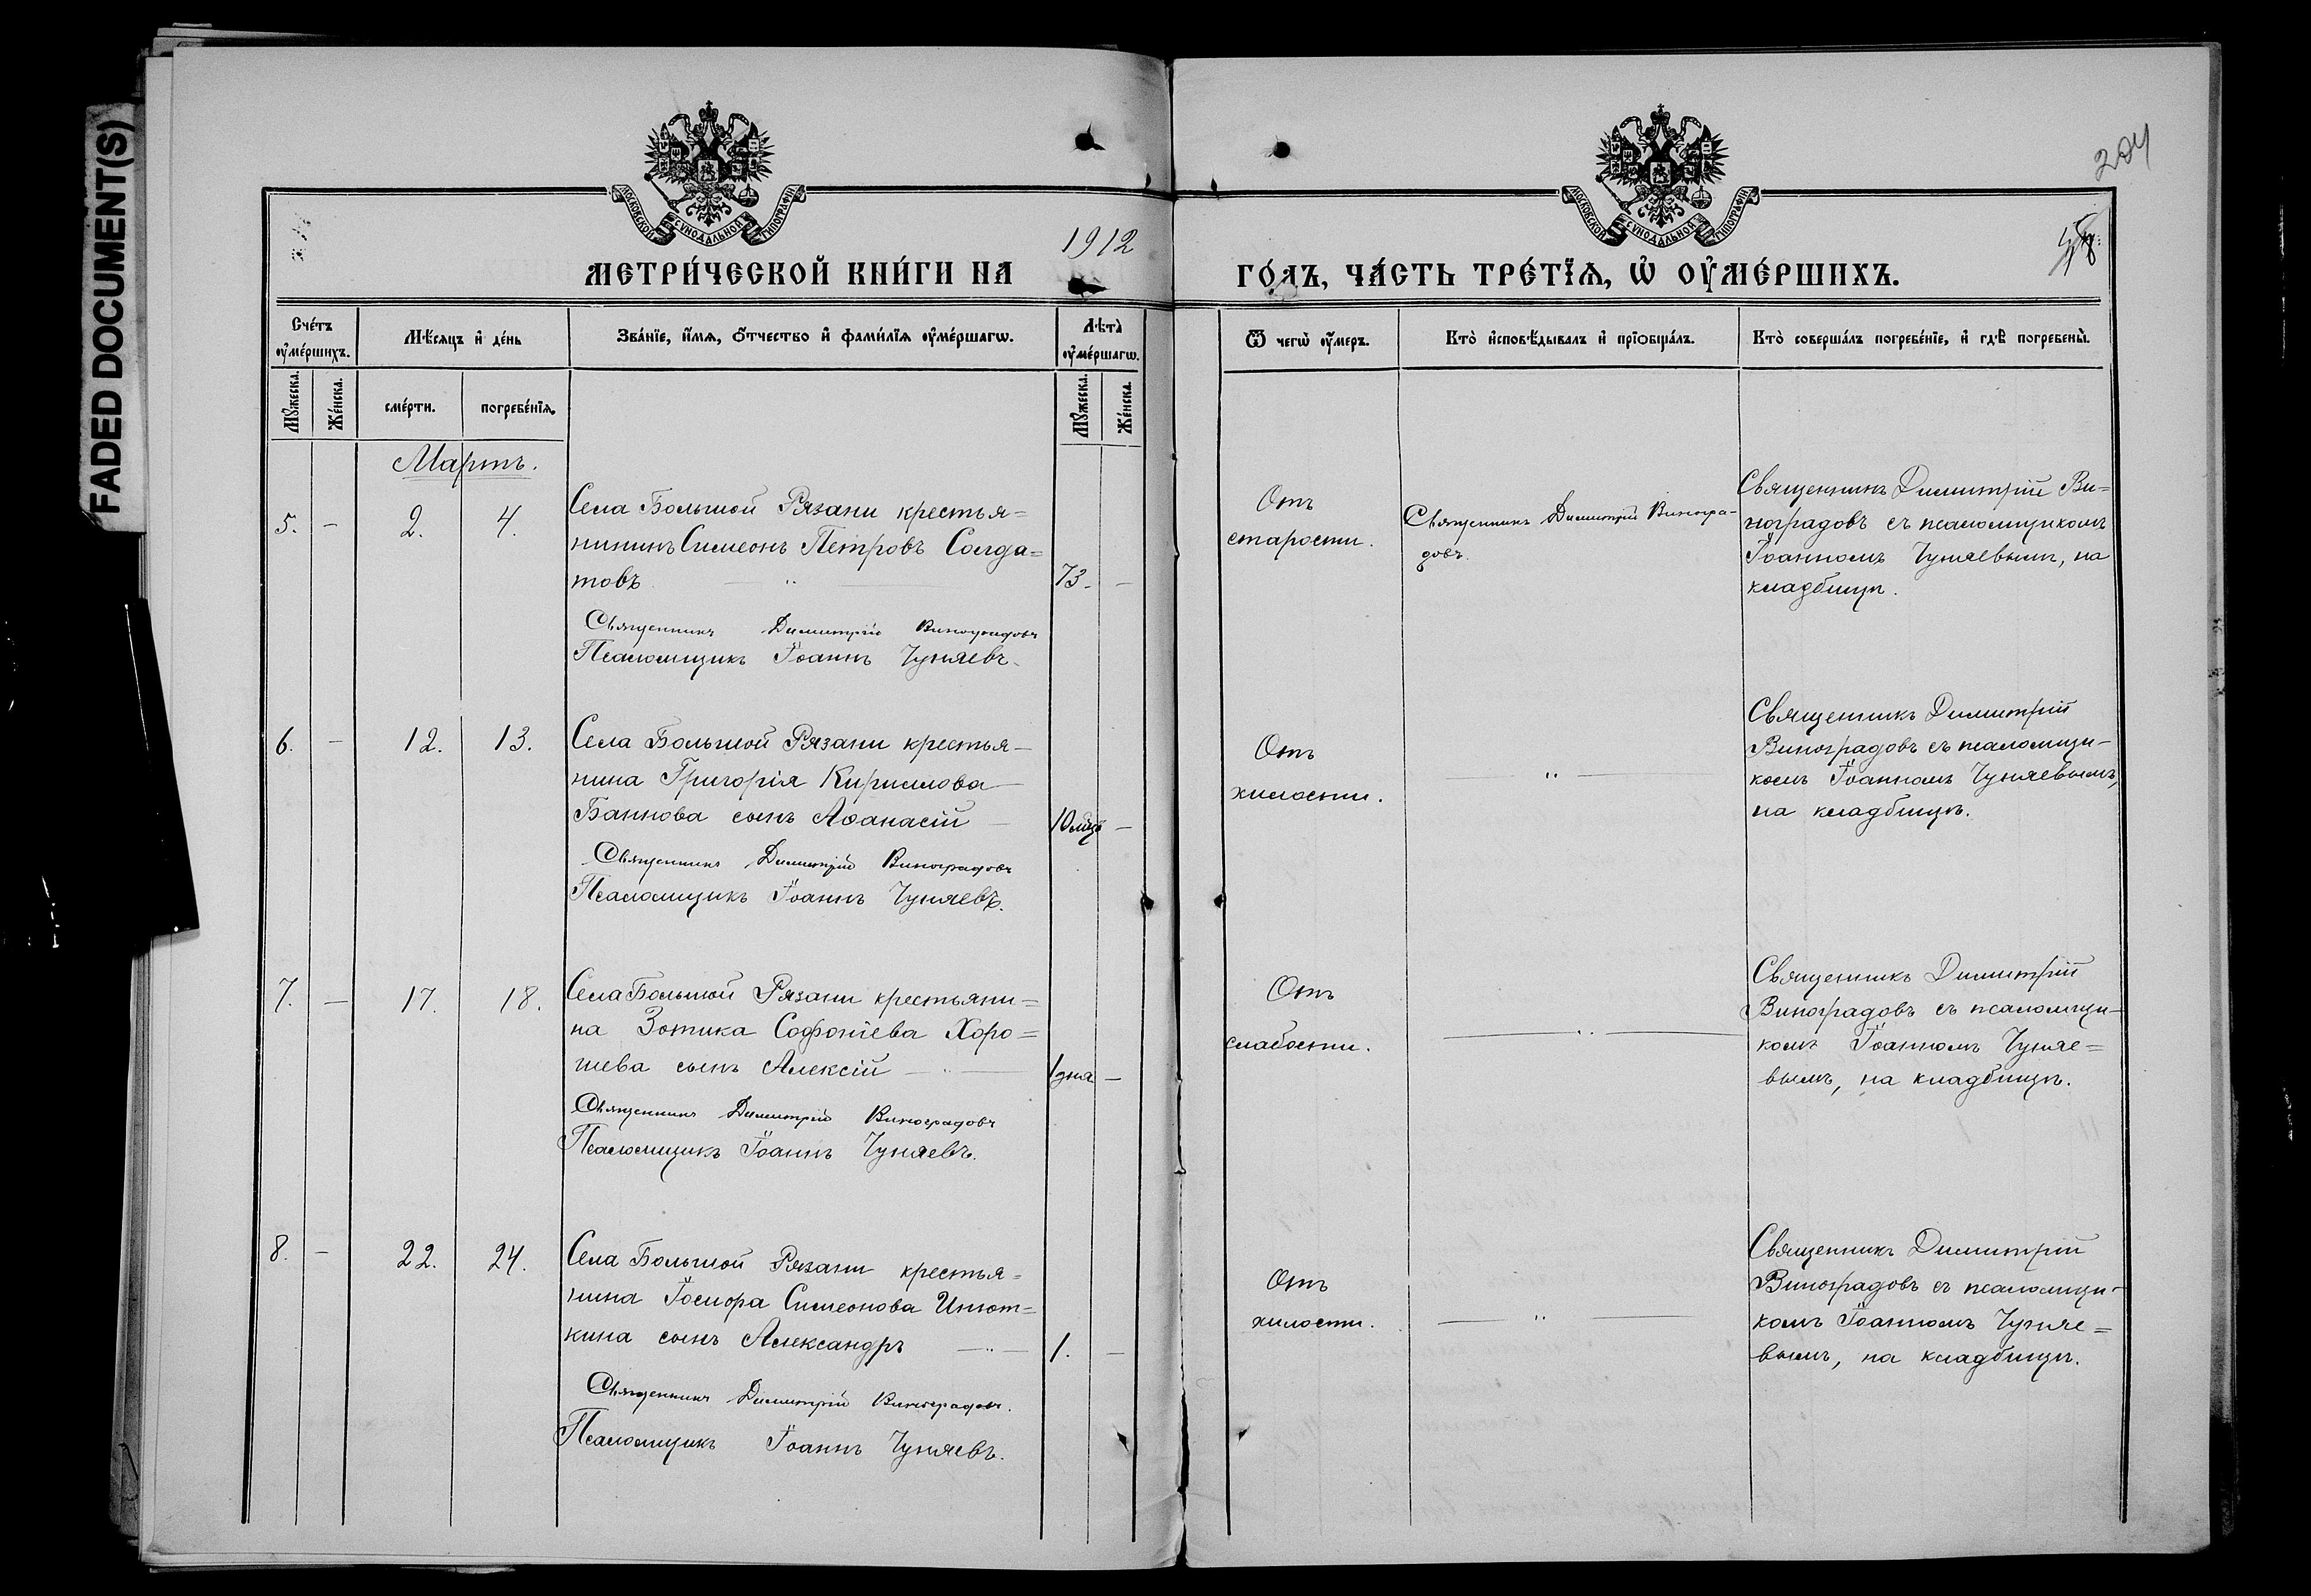 FADED DOCUMENT(S)
МОСКОВСКОЙ СУНОДАЛЬНОЙ ТИПОГРАФІИ
МОСКОВСКОЙ СУНОДАЛЬНОЙ ТИПОГРАФІИ
204
1912
МЕТРИ́ЧЕСКОЙ КНИ́ГИ НА
ГО́ДЪ, ЧА́СТЬ ТРЕ́ТЇѦ, Ѡ҆ ОУ҆МЕ́РШИХЪ.
Сче́тъ оу҆ме́ршихъ.
Мѣ́сяцъ и҆ де́нь
Зва́нїе, и҆́мѧ, ѻ҆́тчество и҆ фами́лїѧ оу҆ме́ршагѡ.
Лѣта̀ оу҆ме́ршагѡ.
Ѿ чегѡ̀ оу҆́меръ.
Кто̀ и҆сповѣ́дывалъ и҆ прїѻбща́лъ.
Кто̀ соверша́лъ погребе́нїе, и҆ гдѣ̀ погребены̀.
Мꙋ́жеска.
Же́нска.
сме́рти.
погребе́нїѧ.
Мꙋ́жеска.
Же́нска.
Мартъ.
5. - 2. 4.
Села Большой Рязани крестья=
нинъ Симеонъ Петровъ Солда=
товъ
73 -
Священникъ Димитрій Виноградовъ
Псаломщикъ Іоаннъ Чуняевъ.
Отъ
старости.
Священникъ Димитрій Виногра-
довъ.
Священникъ Димитрій Ви=
ноградовъ съ псаломщикомъ
Іоанномъ Чуняевымъ, на
кладбищѣ.
6. - 12. 13.
Села Большой Рязани крестья-
нина Григорія Кириллова
Баннова сынъ Аѳанасій
10 мѣц -
Священникъ Димитрій Виноградовъ
Псаломщикъ Іоаннъ Чуняевъ.
Отъ
хилости.
— " —
Священникъ Димитрій
Виноградовъ съ псаломщи-
комъ Іоанномъ Чуняевымъ,
на кладбищѣ.
7. - 17. 18.
Села Большой Рязани крестьяни=
на Зотика Софоніева Хоро=
шева сынъ Алексій
1 дня -
Священникъ Димитрій Виноградовъ
Псаломщикъ Іоаннъ Чуняевъ.
Отъ
слабости.
— " —
Священникъ Димитрій
Виноградовъ съ псаломщи-
комъ Іоанномъ Чуняе=
вымъ, на кладбищѣ.
8. - 22. 24.
Села Большой Рязани крестья=
нина Симеонова Инют=
кина сынъ Александръ
1. -
Священникъ Димитрій Виноградовъ.
Псаломщикъ Іоаннъ Чуняевъ.
Отъ
хилости.
— " —
Священникъ Димитрій
Виноградовъ съ псаломщи-
комъ Іоанномъ Чуняе=
вымъ, на кладбищѣ.